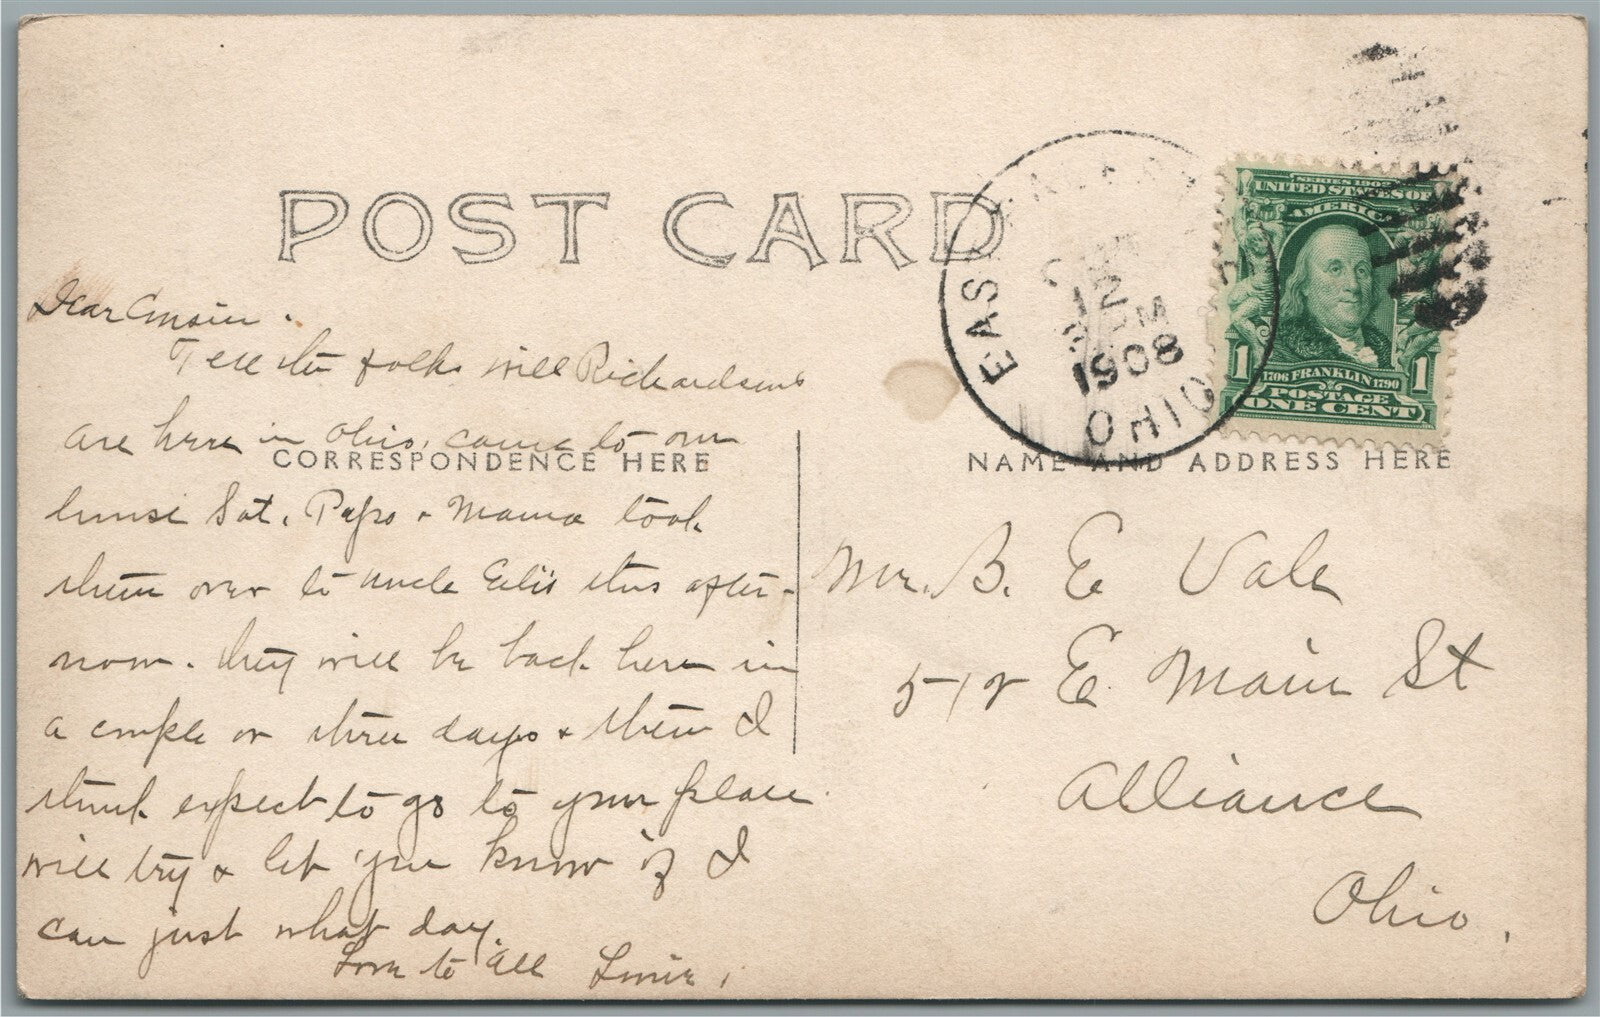 POST CARD
EAS
12
M
1908
OHIO
SERIES 1902
UNITED STATES OF
AMERICA
1 1706 FRANKLIN 1790 1
POSTAGE
ONE CENT
Dear Cousin.
Tell the folks will Richardsons
are here in Ohio, came to our
CORRESPONDENCE HERE
house Sat. Papa + Mama took
them over to uncle this after-
noon. they will be back here in
a couple or three days + then I
think expect to go to your place
will try + let you know if I
can just what day.
Love to all
NAME AND ADDRESS HERE
Mr. B. E Vale
E Main St
Alliance
Ohio.